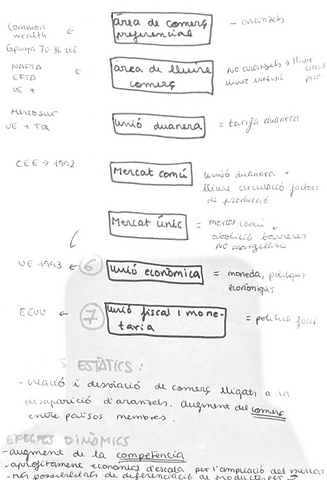 Common
wealth ←
Espanya 70-86 UE
àrea de comerç
preferencial
- aranzels
NAFTA ←
EFTA
UE +
àrea de lliure
comerç
NO aranzels → lliure
Mercosur
UE + TQ
unió duanera
= tarifa duanera
CEE → 1992
Mercat comú
unió duanera +
lliure circulació factors
de producció
Mercat únic
= mercat comú +
abolició barreres
NO aranzelàries
UE 1993 ← 6
unió econòmica
= moneda, polítiques
econòmiques
←
7
unió fiscal i mone-
tària
= política fiscal
ESTÀTICS:
- creació i desviació de comerç lligats a la
desaparició d'aranzels. Augment del comerç
entre països membres.
EFECTES DINÀMICS
- augment de la competència
- aprofitament economies d'escala per l'ampliació del mercat
- més possibilitats de diferenciació de productes